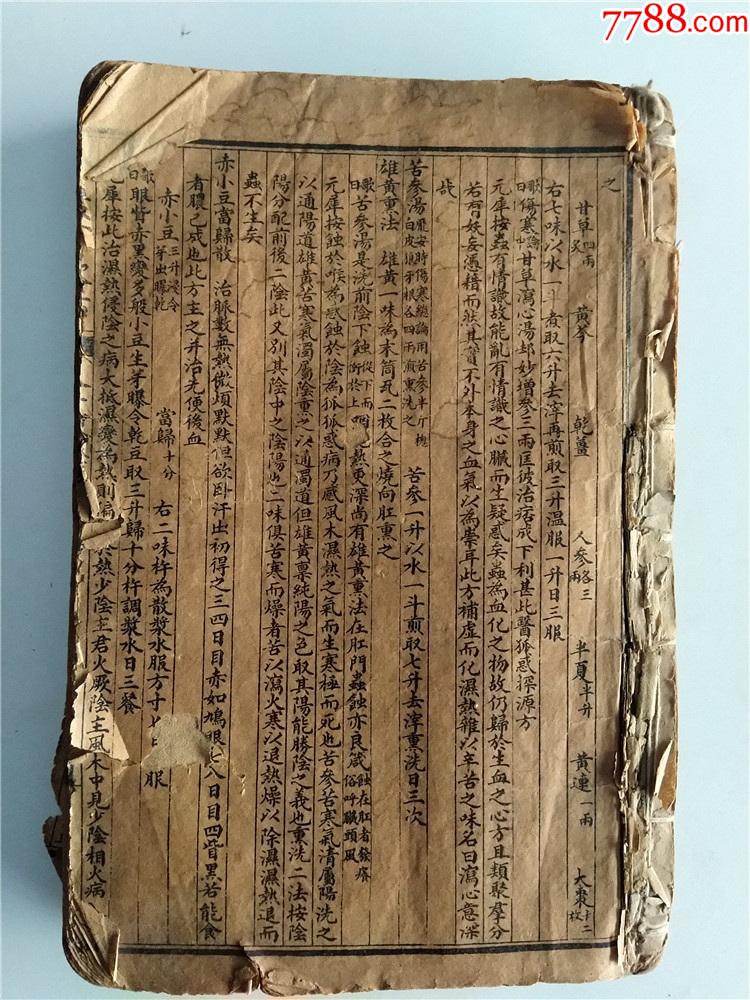 7788.com
之
甘草四兩炙 黃芩 乾薑 人參各三兩 半夏半升 黃連一兩 大棗十二枚
右七味以水一斗煮取六升去滓再煎取三升温服一升日三服
歌曰傷寒論中甘草瀉心湯却妙增參三兩匡彼治痞成下利甚此醫狐惑探源方
元犀按蟲有情識故能亂有情識之心臟而生疑惑矣蟲為血化之物故仍歸於生血之心方且類聚羣分
若有妖妄憑藉而然其實不外本身之血氣以為祟耳此方補虛而化濕熱雜以辛苦之味名曰瀉心意深
哉
苦參湯龐安時傷寒總論用苦參半斤槐白皮狼牙根各四兩煎熏洗之 苦參一升以水一斗煎取七升去滓熏洗日三次
雄黃熏法 雄黃一味為末筒瓦二枚合之燒向肛熏之
歌曰苦參湯是洗前陰下蝕從下而衝於上咽 熱更深尚有雄黃熏法在肛門蟲蝕亦良箴蝕在肛者發癢俗呼臟頭風
元犀按蝕於喉為惑蝕於陰為狐狐惑病乃感風木濕熱之氣而生寒極而死也苦參苦寒氣清屬陽洗之
以通陽道雄黃苦寒氣濁屬陰熏之以通濁道但雄黃稟純陽之色取其陽能勝陰之義也熏洗二法按陰
陽分配前後二陰此又別其陰中之陰陽也二味俱苦寒而燥者苦以瀉火寒以退熱燥以除濕濕熱退而
蟲不生矣
赤小豆當歸散 治脈數無熱微煩默默但欲卧汗出初得之三四日目赤如鳩眼七八日目四眥黑若能食
者膿已成也此方主之并治先便後血
赤小豆三升浸令芽出曝乾 當歸十分 右二味杵為散漿水服方寸匕日 服
歌曰眼眥赤黑變多般小豆生芽曝令乾豆取三升歸十分杵調漿水日三餐
元犀按此治濕熱侵陰之病大抵濕變為熱則偏 於熱少陰主君火厥陰主風木中見少陰相火病